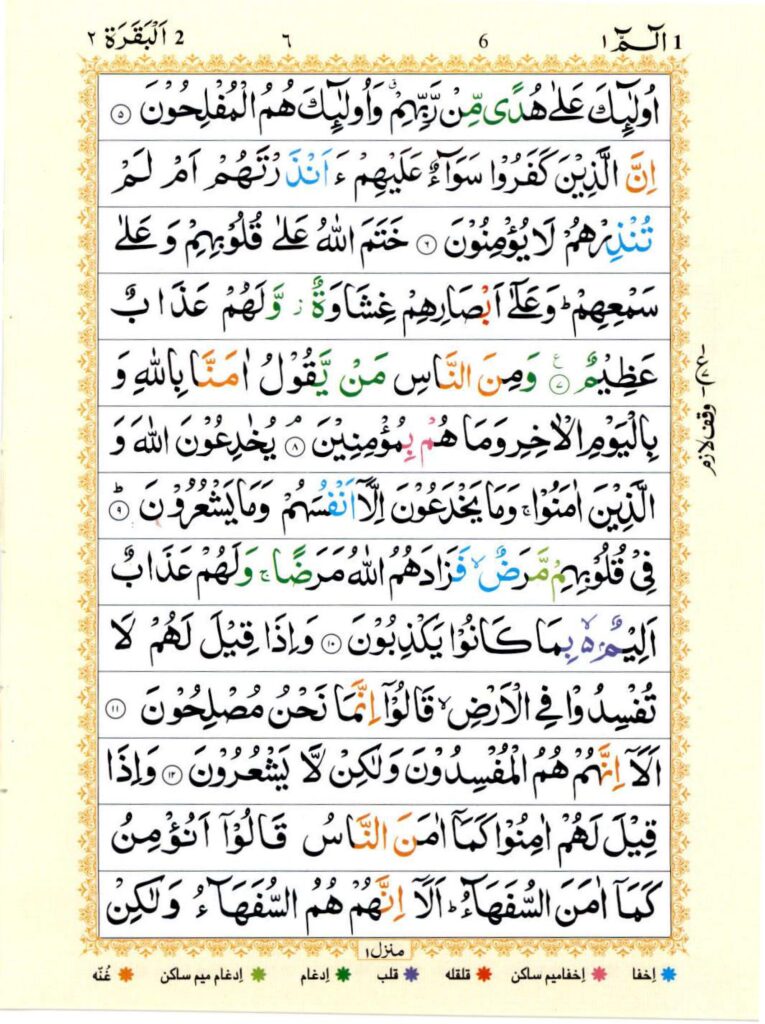 1 الٓـمّٓ ١ 6 ٦ 2 اَلْبَقَرَة ٢
اُولٰٓئِكَ عَلٰى هُدًى مِّنْ رَّبِّهِمْ ۗ وَاُولٰٓئِكَ هُمُ الْمُفْلِحُوْنَ ۝٥
اِنَّ الَّذِيْنَ كَفَرُوْا سَوَآءٌ عَلَيْهِمْ ءَ اَنْذَرْتَهُمْ اَمْ لَمْ
تُنْذِرْهُمْ لَا يُؤْمِنُوْنَ ۝٦ خَتَمَ اللّٰهُ عَلٰى قُلُوْبِهِمْ وَ عَلٰى
سَمْعِهِمْ ؕ وَعَلٰٓى اَبْصَارِهِمْ غِشَاوَةٌ ؗ وَّلَهُمْ عَذَابٌ
عَظِيْمٌ ۝٧ ع وَمِنَ النَّاسِ مَنْ يَّقُوْلُ اٰمَنَّا بِاللّٰهِ وَ
بِالْيَوْمِ الْاٰخِرِ وَمَا هُمْ بِمُؤْمِنِيْنَ ۝٨ۘ يُخٰدِعُوْنَ اللّٰهَ وَ
الَّذِيْنَ اٰمَنُوْا ۚ وَمَا يَخْدَعُوْنَ اِلَّآ اَنْفُسَهُمْ وَمَا يَشْعُرُوْنَ ۝٩ؕ
فِيْ قُلُوْبِهِمْ مَّرَضٌ ۙ فَزَادَهُمُ اللّٰهُ مَرَضًا ۚ وَلَهُمْ عَذَابٌ
اَلِيْمٌۢ ۙ بِمَا كَانُوْا يَكْذِبُوْنَ ۝١٠ وَاِذَا قِيْلَ لَهُمْ لَا
تُفْسِدُوْا فِي الْاَرْضِ ۙ قَالُوْٓا اِنَّمَا نَحْنُ مُصْلِحُوْنَ ۝١١
اَلَآ اِنَّهُمْ هُمُ الْمُفْسِدُوْنَ وَلٰكِنْ لَّا يَشْعُرُوْنَ ۝١٢ وَاِذَا
قِيْلَ لَهُمْ اٰمِنُوْا كَمَآ اٰمَنَ النَّاسُ قَالُوْٓا اَنُؤْمِنُ
كَمَآ اٰمَنَ السُّفَهَآءُ ؕ اَلَآ اِنَّهُمْ هُمُ السُّفَهَآءُ وَلٰكِنْ
ع ٧ وقف لازم
منزل ١
اِخفا اِخفامیم ساکن قلقله قلب اِدغام اِدغام میم ساکن غُنّه